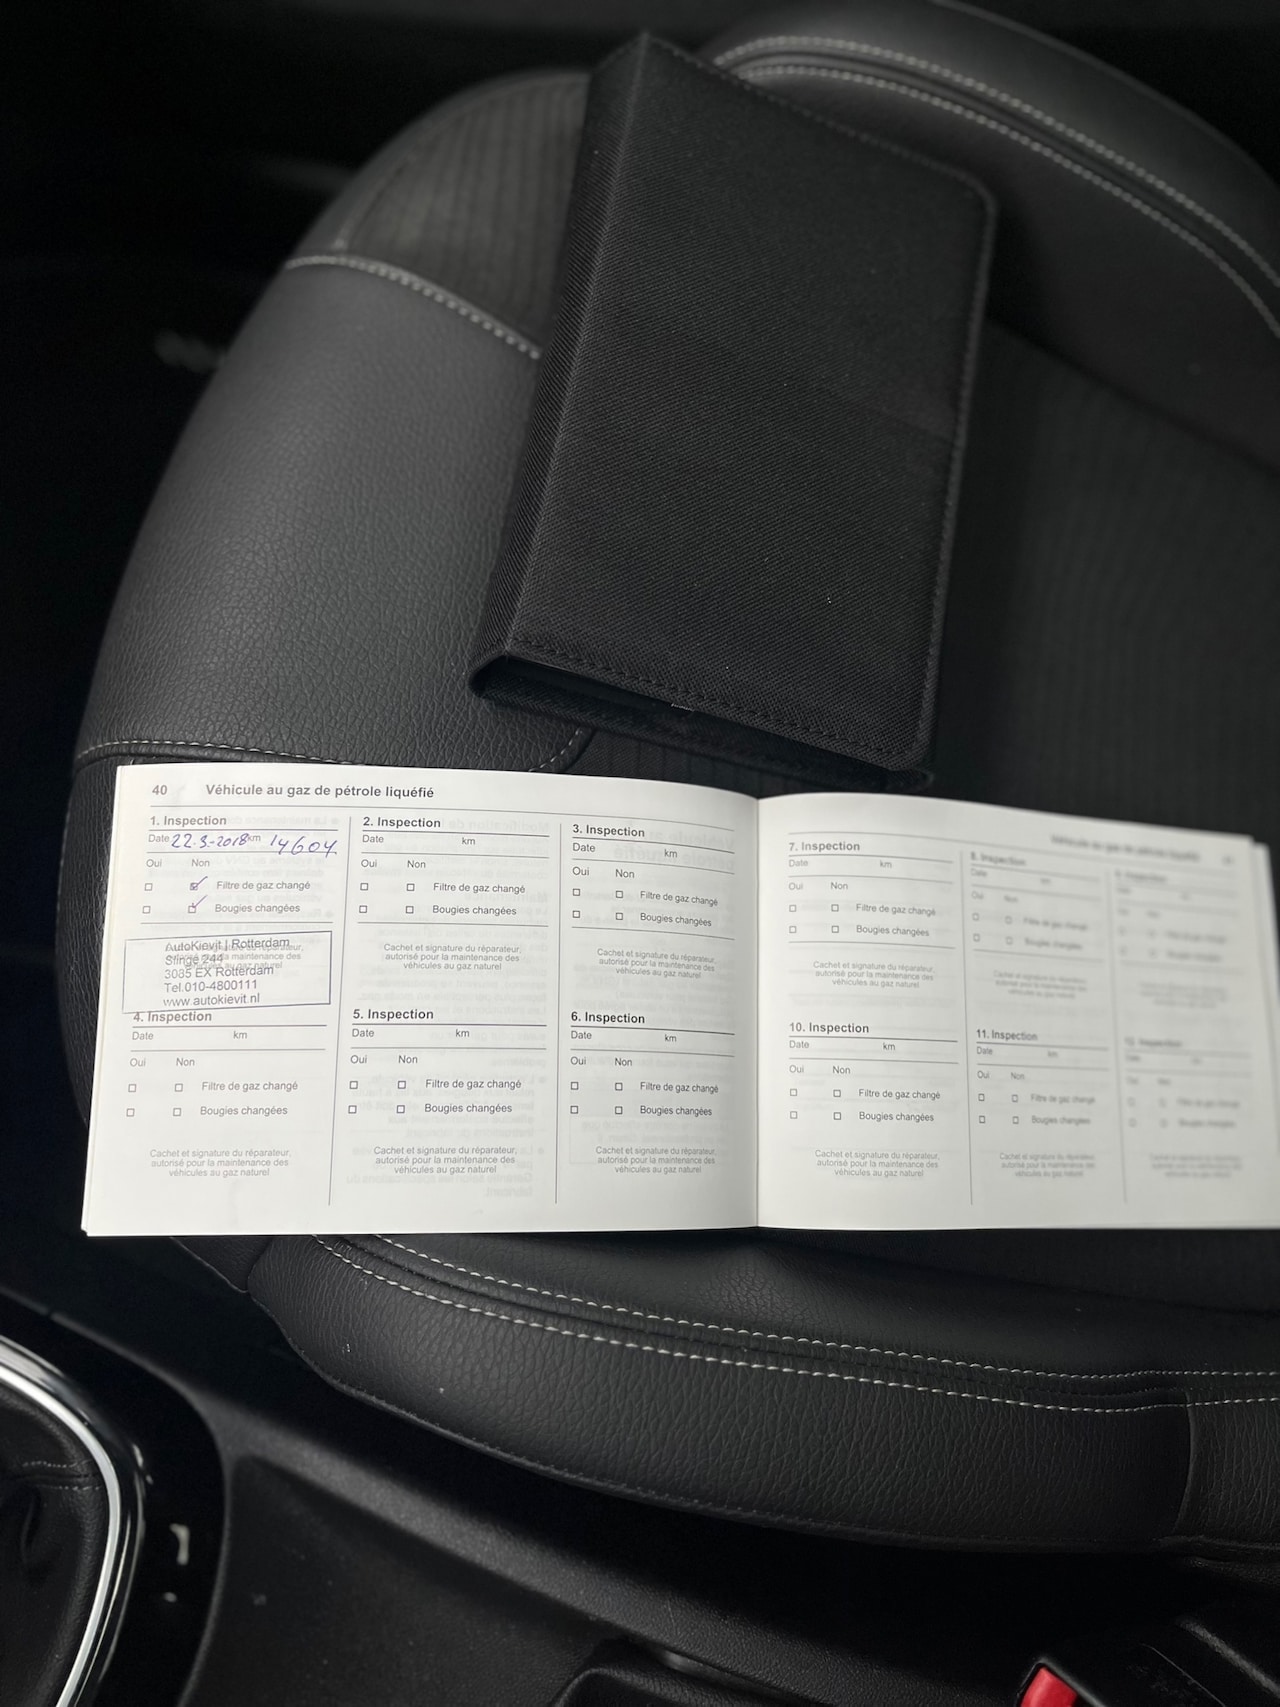 40 Véhicule au gaz de pétrole liquéfié
1. Inspection
Date 22-3-2018 km 14604
Oui Non
Filtre de gaz changé
Bougies changées
AutoKievit | Rotterdam
Slinge 244
3085 EX Rotterdam
Tel.010-4800111
www.autokievit.nl
2. Inspection
Date km
Oui Non
Filtre de gaz changé
Bougies changées
Cachet et signature du réparateur,
autorisé pour la maintenance des
véhicules au gaz naturel
3. Inspection
Date km
Oui Non
Filtre de gaz changé
Bougies changées
Cachet et signature du réparateur,
autorisé pour la maintenance des
véhicules au gaz naturel
4. Inspection
Date km
Oui Non
Filtre de gaz changé
Bougies changées
Cachet et signature du réparateur,
autorisé pour la maintenance des
véhicules au gaz naturel
5. Inspection
Date km
Oui Non
Filtre de gaz changé
Bougies changées
Cachet et signature du réparateur,
autorisé pour la maintenance des
véhicules au gaz naturel
6. Inspection
Date km
Oui Non
Filtre de gaz changé
Bougies changées
Cachet et signature du réparateur,
autorisé pour la maintenance des
véhicules au gaz naturel
Véhicule au gaz de pétrole liquéfié
7. Inspection
Date km
Oui Non
Filtre de gaz changé
Bougies changées
Cachet et signature du réparateur,
autorisé pour la maintenance des
véhicules au gaz naturel
8. Inspection
Date km
Oui Non
Filtre de gaz changé
Bougies changées
Cachet et signature du réparateur,
autorisé pour la maintenance des
véhicules au gaz naturel
10. Inspection
Date km
Oui Non
Filtre de gaz changé
Bougies changées
Cachet et signature du réparateur,
autorisé pour la maintenance des
véhicules au gaz naturel
11. Inspection
Date km
Oui Non
Filtre de gaz changé
Bougies changées
Cachet et signature du réparateur,
autorisé pour la maintenance des
véhicules au gaz naturel